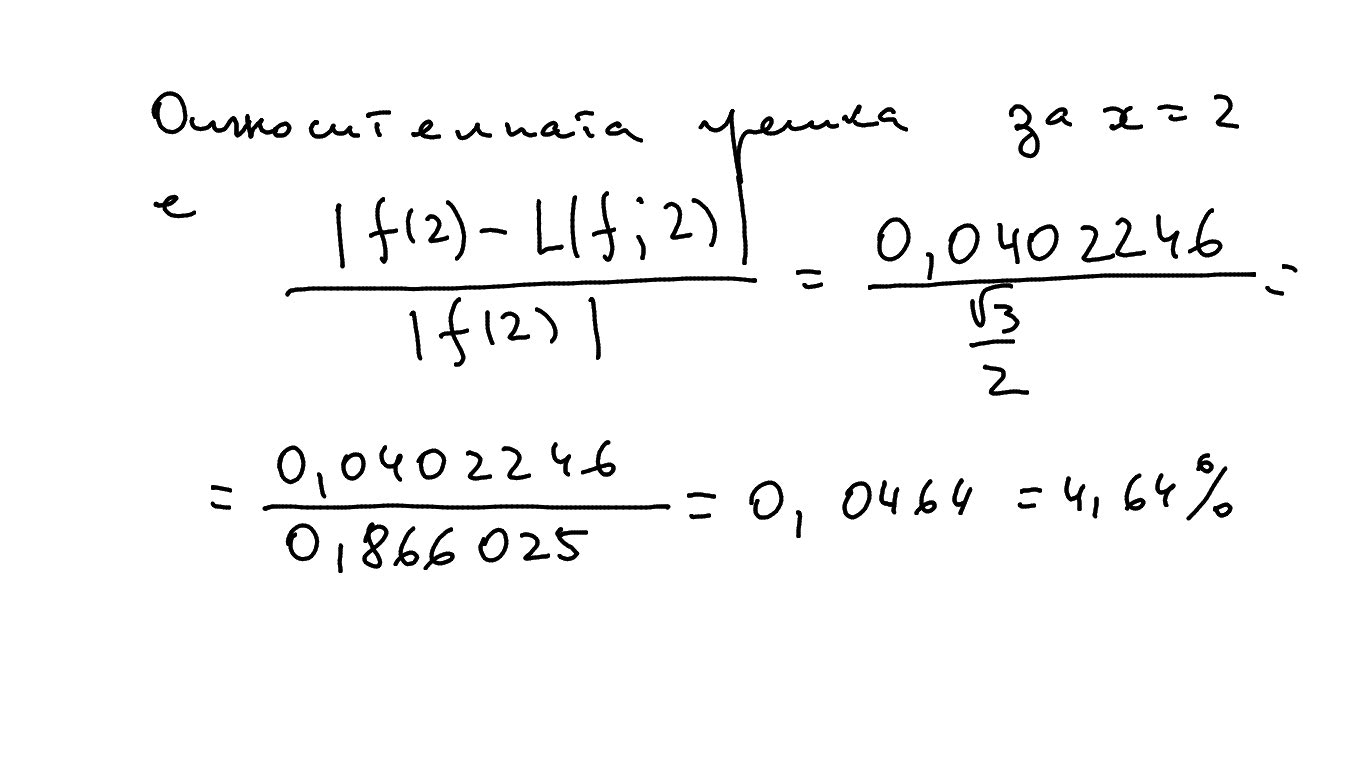 Относителната грешка за x = 2
е |f(2) - L(f; 2)| / |f(2)| = 0,0402246 / (√3 / 2) =
= 0,0402246 / 0,866025 = 0,0464 = 4,64%